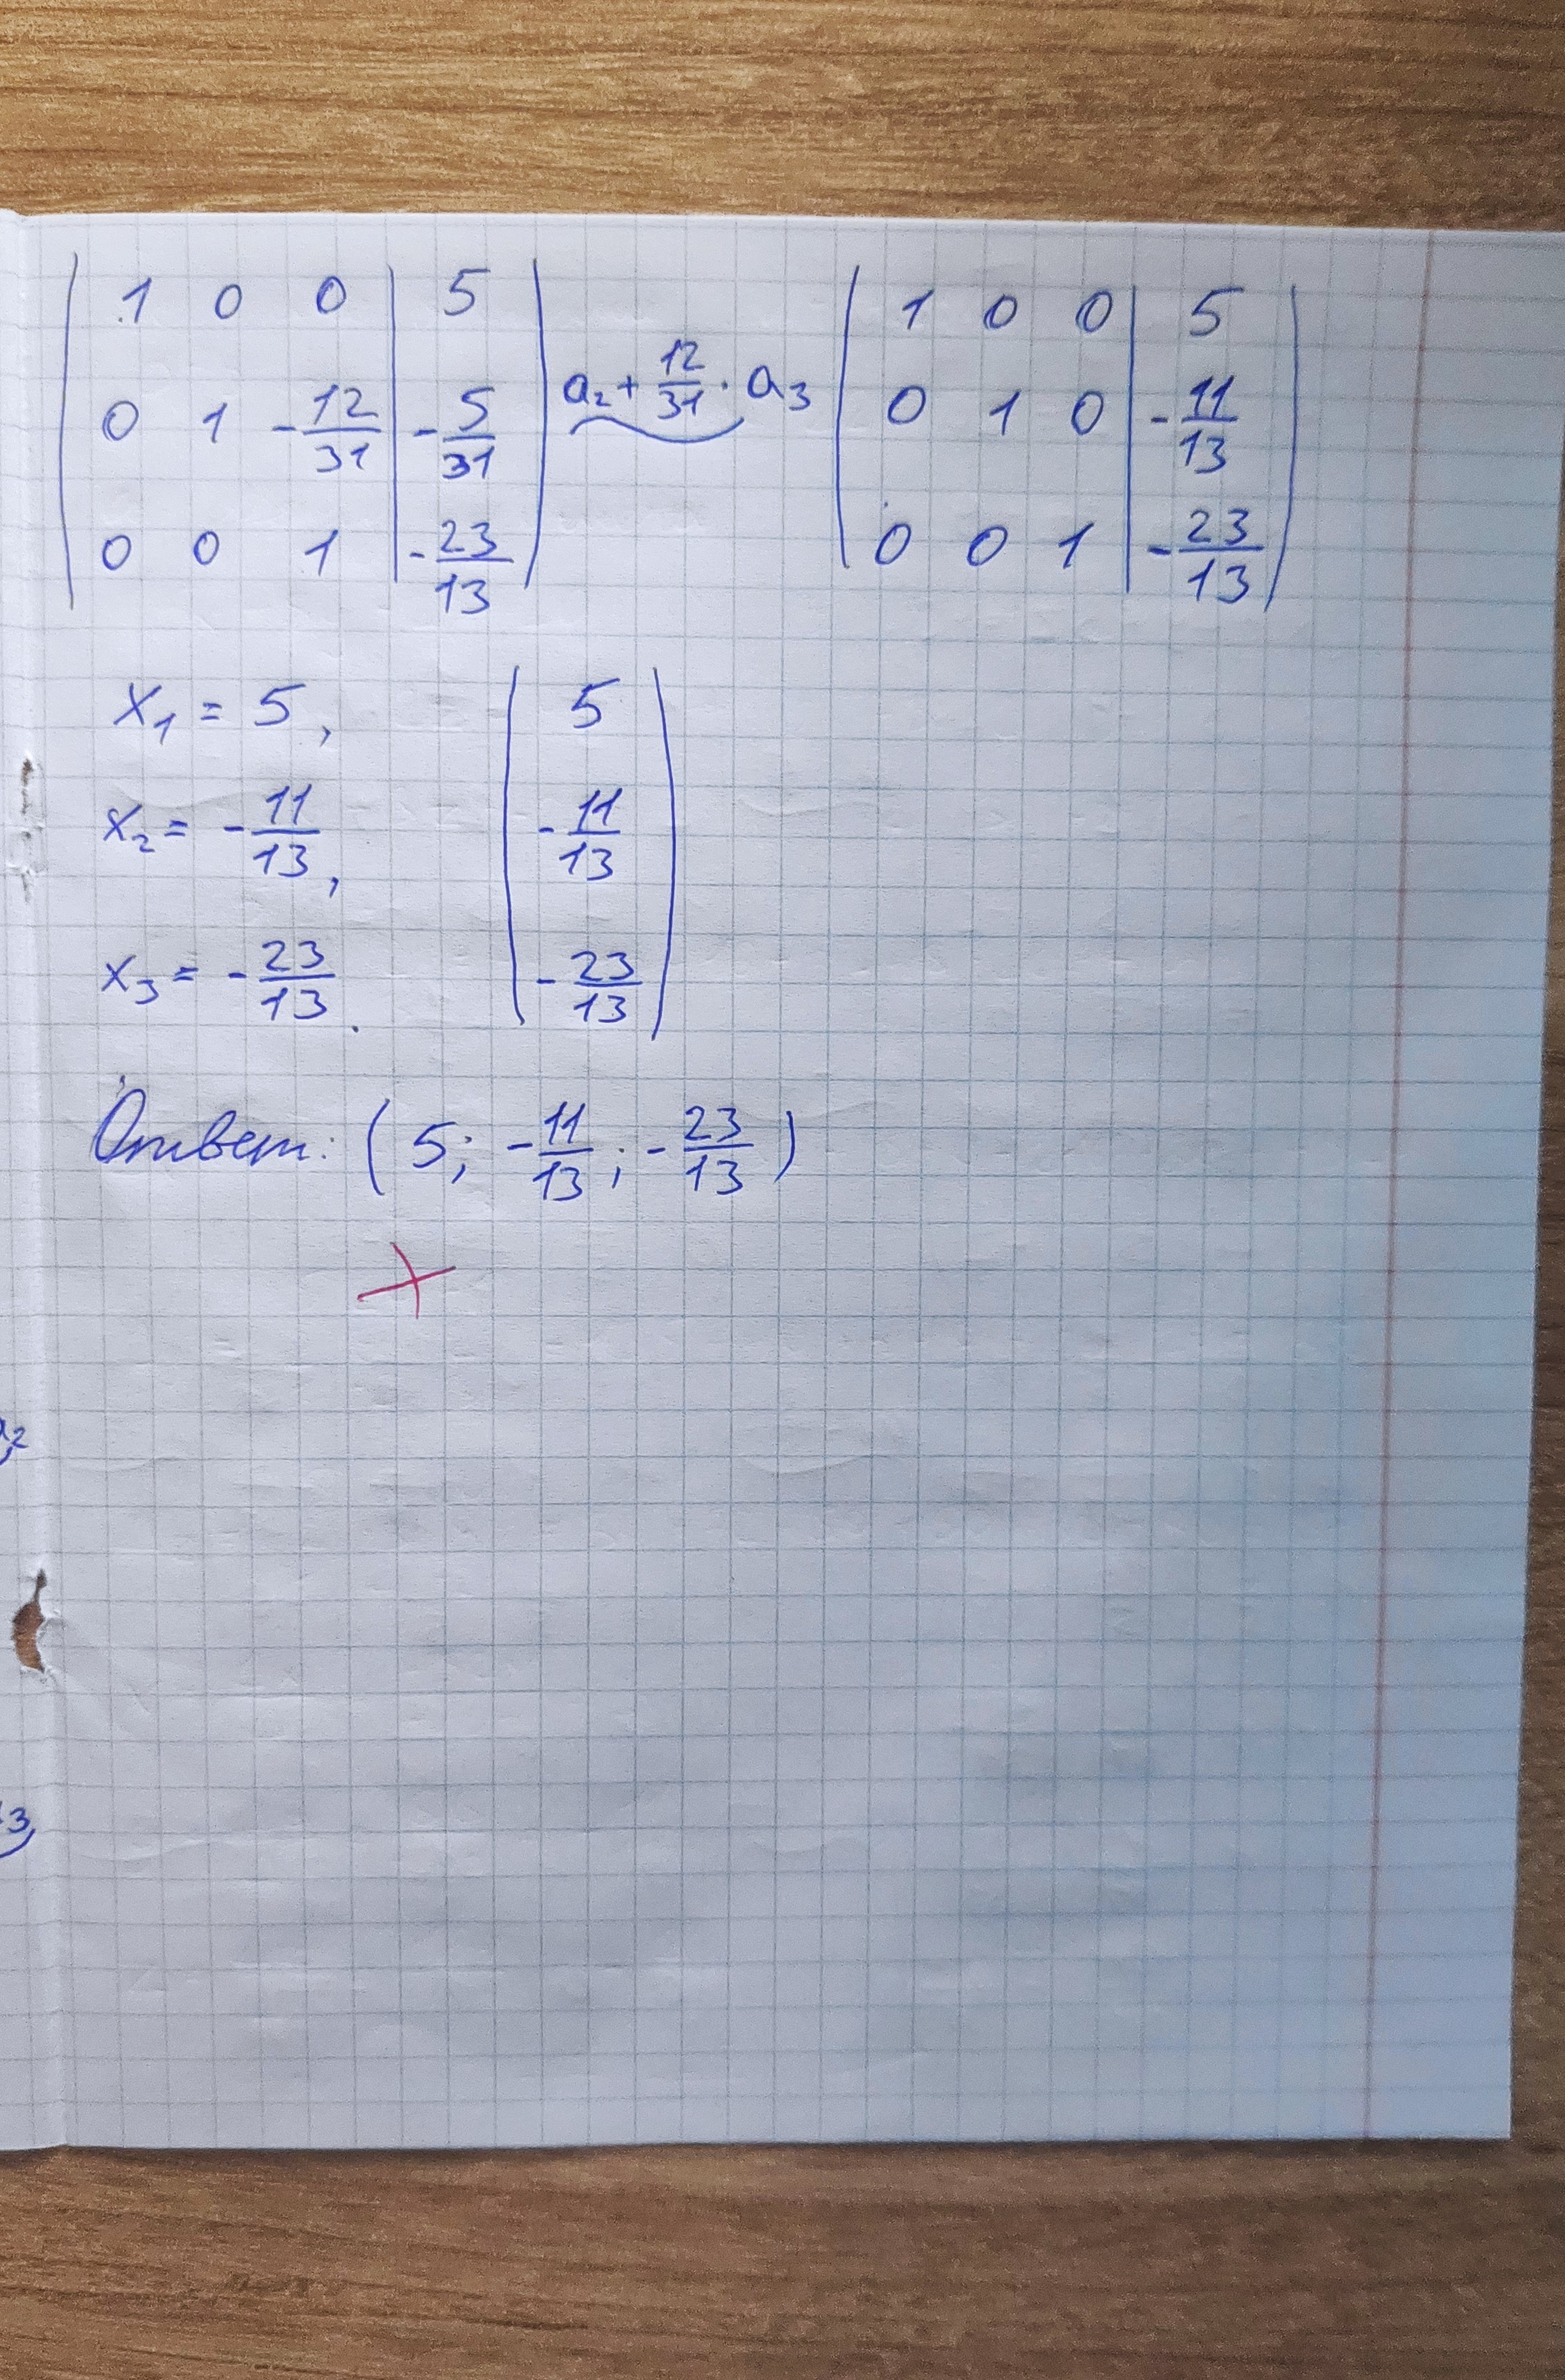 | 1 0 0 | 5 |
| 0 1 -12/31 | -5/31 | a₂ + 12/31 · a₃
| 0 0 1 | -23/13 |
| 1 0 0 | 5 |
| 0 1 0 | -11/13 |
| 0 0 1 | -23/13 |
x₁ = 5,
x₂ = -11/13,
x₃ = -23/13.
| 5 |
| -11/13 |
| -23/13 |
Ответ: (5; -11/13; -23/13)
a₂
3